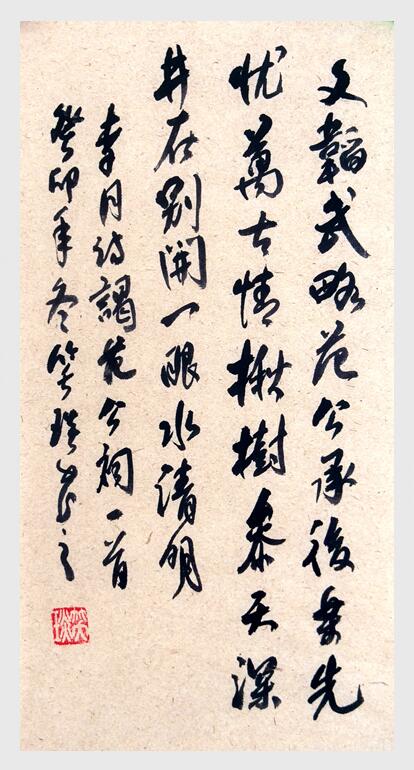 文韜武略范公承後樂先
忧萬古情楸樹參天深
井在别開一眼水清明
李月诗謁范公祠一首
癸卯年冬笑之